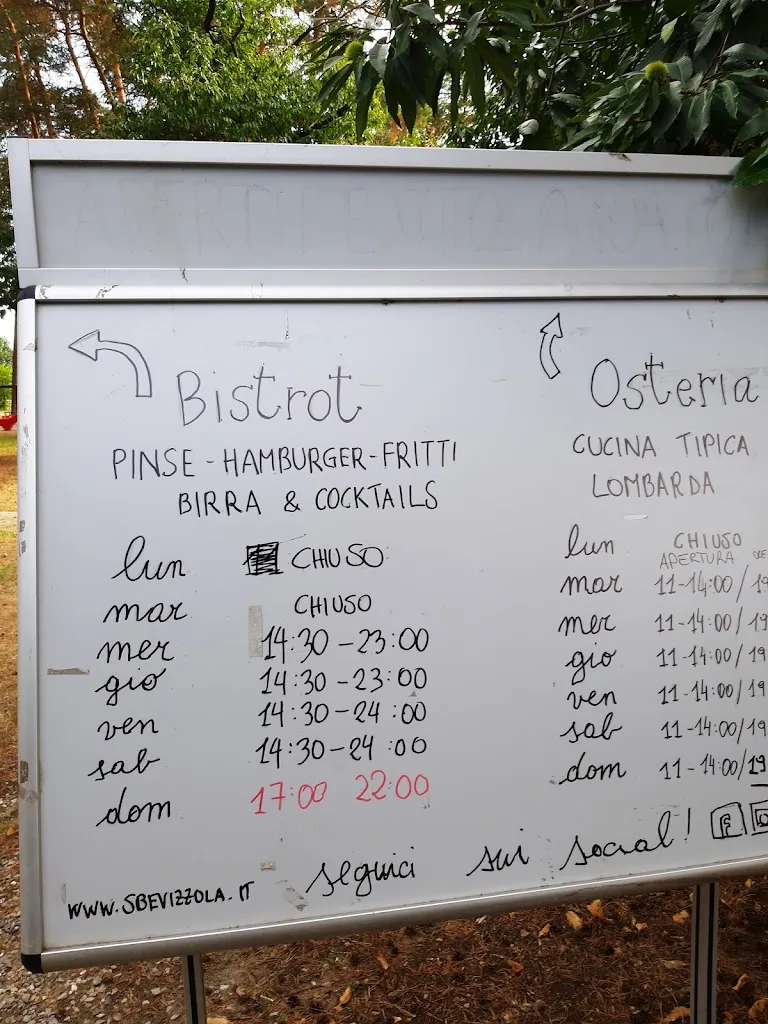 Bistrot
PINSE - HAMBURGER - FRITTI
BIRRA & COCKTAILS
lun CHIUSO
mar CHIUSO
mer 14:30 - 23:00
gio 14:30 - 23:00
ven 14:30 - 24:00
sab 14:30 - 24:00
dom 17:00 22:00
Osteria
CUCINA TIPICA
LOMBARDA
lun CHIUSO
APERTURA
mar 11-14:00/19
mer 11-14:00/19
gio 11-14:00/19
ven 11-14:00/19
sab 11-14:00/19
dom 11-14:00/19
seguici sui social!
WWW.SBEVIZZOLA.IT